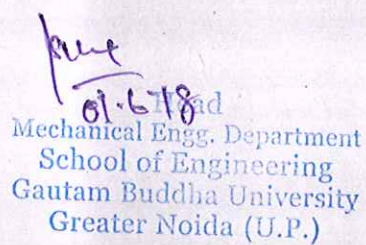 01.6.18
Head
Mechanical Engg. Department
School of Engineering
Gautam Buddha University
Greater Noida (U.P.)